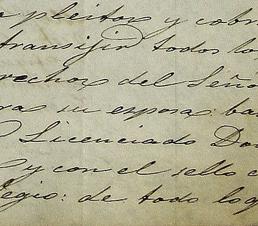 a pleitos y cobr
transigir todos lo
rechos del Seño
ra su esposa: ba
Licenciado Do
y con el sello
legio: de todo log